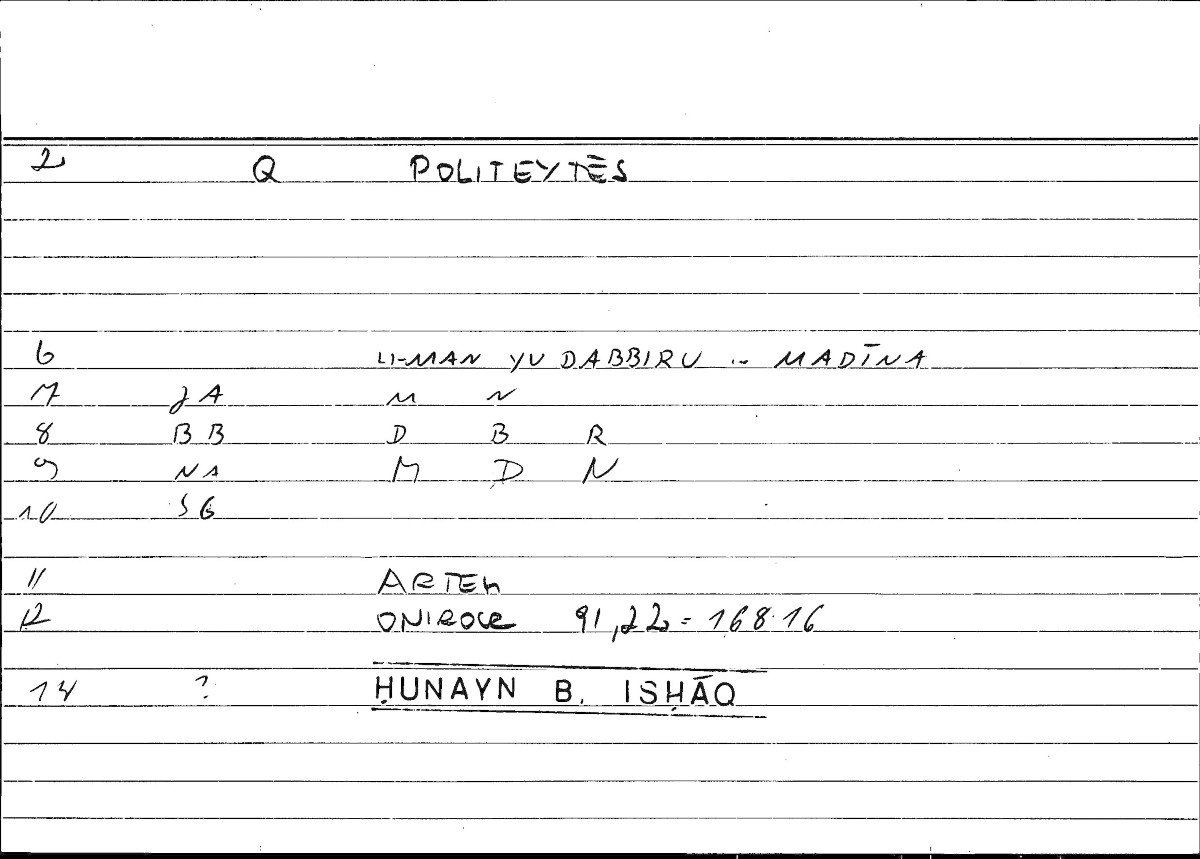 2 Q POLITEYTĒS
6 LI-MAN YUDABBIRU .. MADĪNA
7 JA M N
8 BB D B R
9 NA M D N
10 SG
11 ARTEM
12 ONIROCR 91,22 = 168.16
14 ? ḤUNAYN B. ISḤĀQ